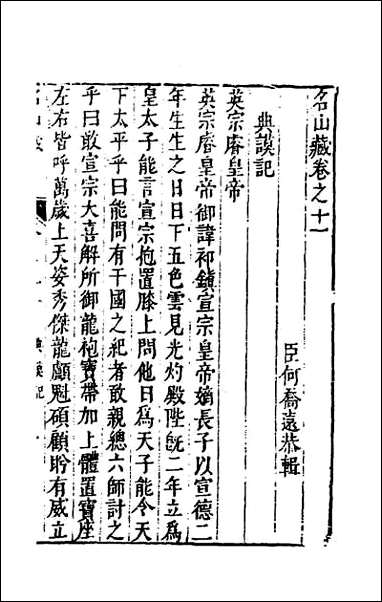 名山藏卷之十一
臣何喬遠恭輯
典謨記
英宗睿皇帝
英宗睿皇帝御諱祁鎮宣宗皇帝嫡長子以宣德二
年生生之日日下五色雲見光灼殿陛既二年立為
皇太子能言宣宗抱置膝上問他日為天子能令天
下太平乎曰能問有干國之紀者敢親總六師討之
乎曰敢宣宗大喜解所御龍袍寶帶加上體置寶座
左右皆呼萬歲上天姿秀傑龍顱魁碩顧盻有威立
典謨記